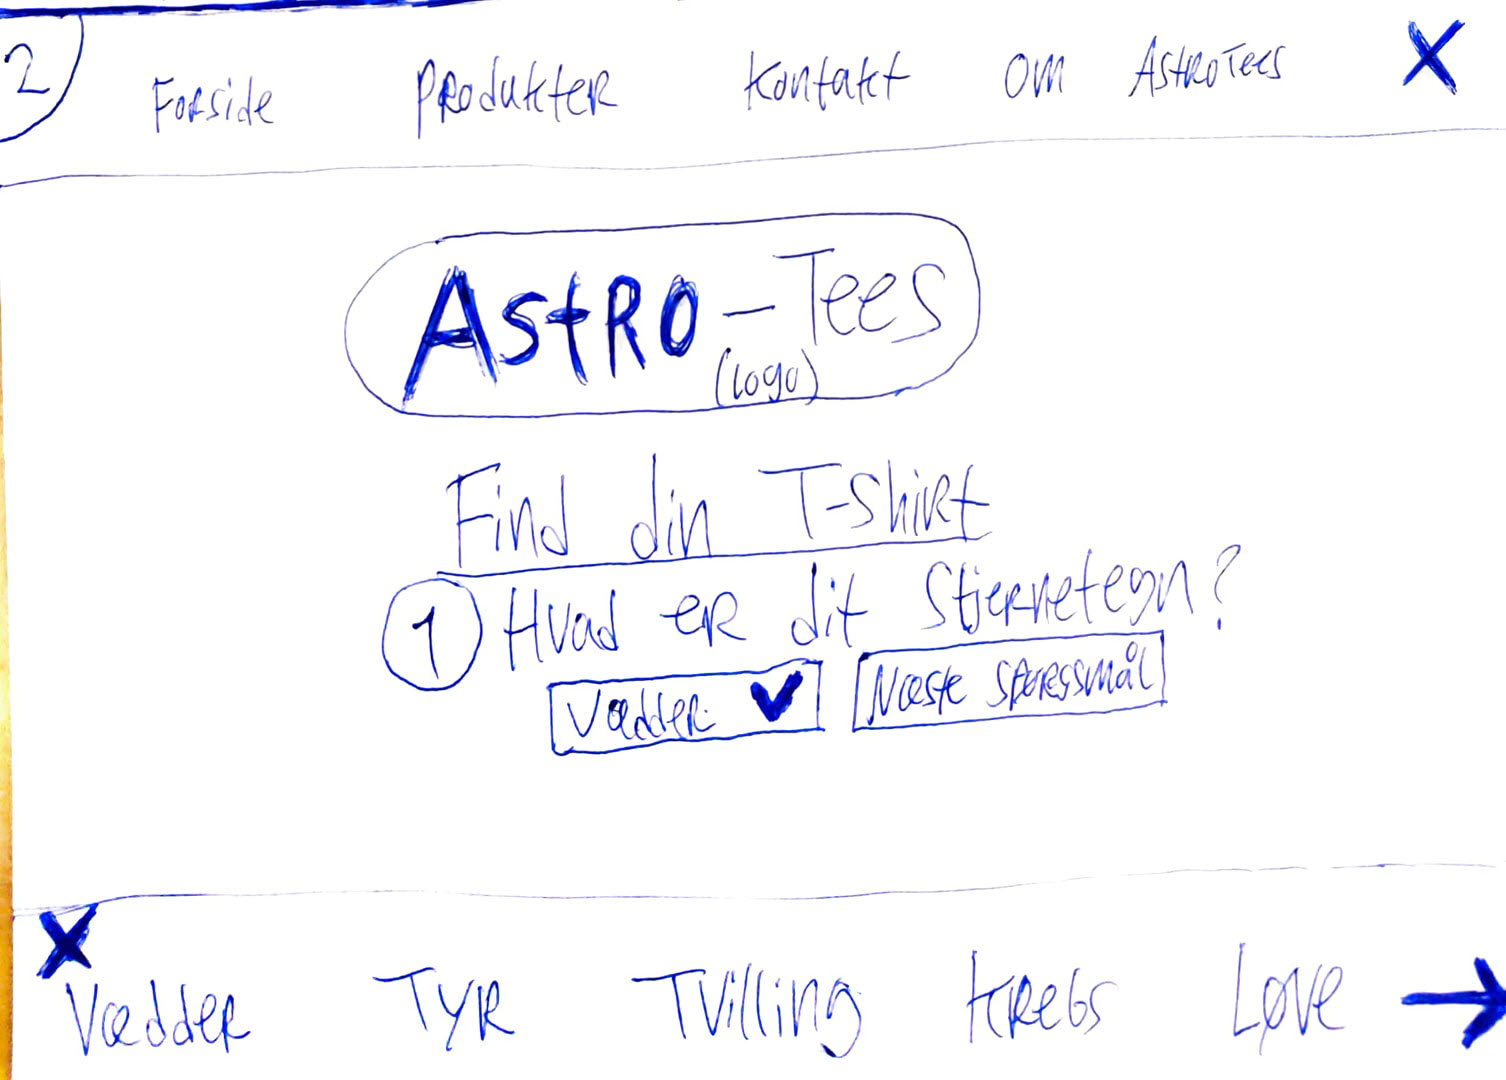 2
Forside Produkter Kontakt Om AstroTees X
Astro-Tees
(logo)
Find din T-shirt
1 Hvad er dit Stjernetegn?
Vædder Næste spørgsmål
X
Vædder Tyr Tvilling Krebs Løve →